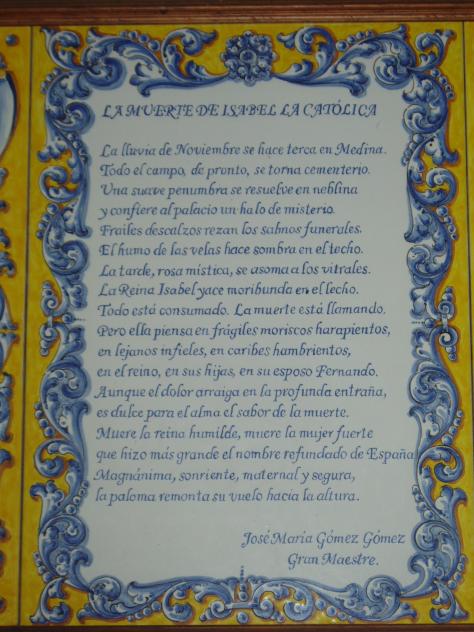 LA MUERTE DE ISABEL LA CATÓLICA
La lluvia de Noviembre se hace terca en Medina.
Todo el campo, de pronto, se torna cementerio.
Una suave penumbra se resuelve en neblina
y confiere al palacio un halo de misterio.
Frailes descalzos rezan los salmos funerales.
El humo de las velas hace sombra en el techo.
La tarde, rosa mística, se asoma a los vitrales.
La Reina Isabel yace moribunda en el lecho.
Todo está consumado. La muerte está llamando.
Pero ella piensa en frágiles moriscos harapientos,
en lejanos infieles, en caribes hambrientos,
en el reino, en sus hijas, en su esposo Fernando.
Aunque el dolor arraiga en la profunda entraña,
es dulce para el alma el sabor de la muerte.
Muere la reina humilde, muere la mujer fuerte
que hizo más grande el nombre refundado de España
Magnánima, sonriente, maternal y segura,
la paloma remonta su vuelo hacia la altura.
José María Gómez Gómez
Gran Maestre.